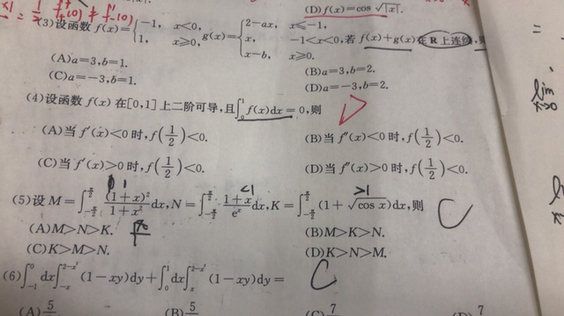 (D) f(x)=cos √|x|.
(3)设函数 f(x)={−1, x<0, 1, x≥0, g(x)={2−ax, x≤−1, x, −1<x<0, x−b, x≥0. 若 f(x)+g(x)在 R 上连续,则
(A)a=3,b=1.
(B)a=3,b=2.
(C)a=−3,b=1.
(D)a=−3,b=2.
(4)设函数 f(x)在[0,1]上二阶可导,且∫₀¹ f(x)dx=0,则
(A)当 f′(x)<0 时,f(1/2)<0.
(B)当 f″(x)<0 时,f(1/2)<0.
(C)当 f′(x)>0 时,f(1/2)<0.
(D)当 f″(x)>0 时,f(1/2)<0.
D
(5)设 M=∫_{−π/2}^{π/2} (1+x)²/(1+x²) dx,N=∫_{−π/2}^{π/2} (1+x)/eˣ dx,K=∫_{−π/2}^{π/2} (1+√cos x)dx,则
<1
>1
C
(A)M>N>K.
(B)M>K>N.
(C)K>M>N.
(D)K>N>M.
(6)∫_{−1}^{0} dx∫_{−x}^{2−x²} (1−xy)dy+∫₀¹ dx∫_{x}^{2−x²} (1−xy)dy=
C
(A) 5
(B) 5
(C) 7
(D) 7
lim
x→0